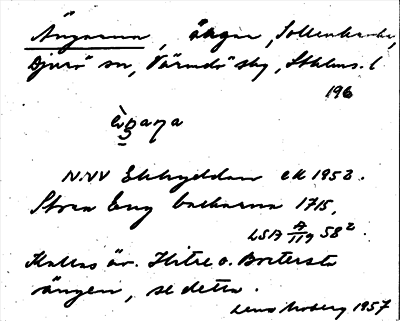 Ängarna, ängar, Sollenkroka,
Djurö sn, Värmdö skg, Sthlms. l
196
èŋana
N.NV Ekbyddan ek 1952.
Stora Eng backarna 1715,
LSA A/119 58².
Kallas äv. Hitre o. Bortersta
ängen, se detta.
1957